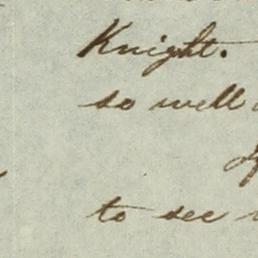 Knight.
so well
to see